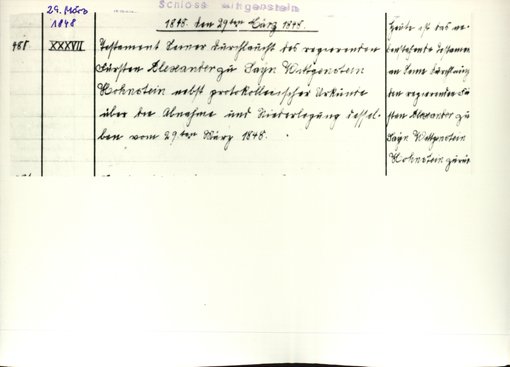 29. März
1848
Schloss Wittgenstein
1848. den 29ten März 1848.
481. XXXVII
Testament Seiner Durchlaucht des regierenden
Fürsten Alexander zu Sayn Wittgenstein
Hohnstein nebst protokollarischer Urkunde
über die Abnahme und Niederlegung dessel-
ben vom 29ten März 1848.
Heute ist das ne-
benstehende Testament
an Seine Durchlaucht
den regierenden Für-
sten Alexander zu
Sayn Wittgenstein
Hohnstein zurück